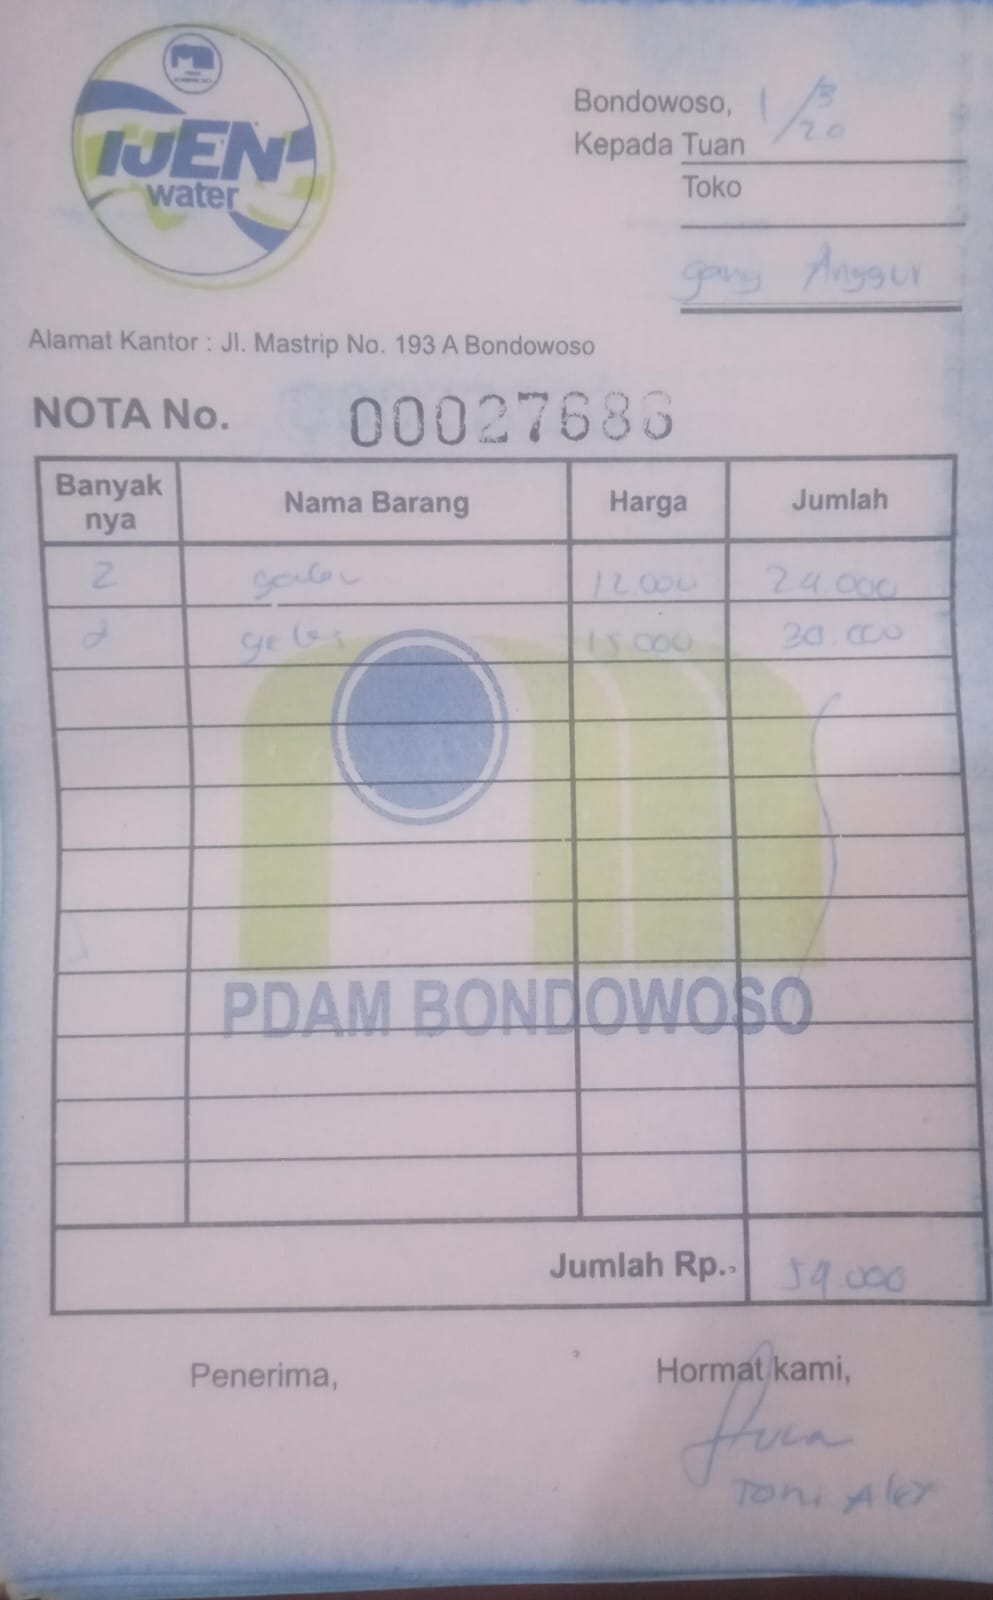 IJEN
water
Bondowoso, 1/3/20
Kepada Tuan
Toko
gang Anggur
Alamat Kantor : Jl. Mastrip No. 193 A Bondowoso
NOTA No. 00027686
Banyak nya Nama Barang Harga Jumlah
2 galon 12.000 24.000
2 gelas 15.000 30.000
PDAM BONDOWOSO
Jumlah Rp. 54.000
Penerima, Hormat kami,
Toni Alex